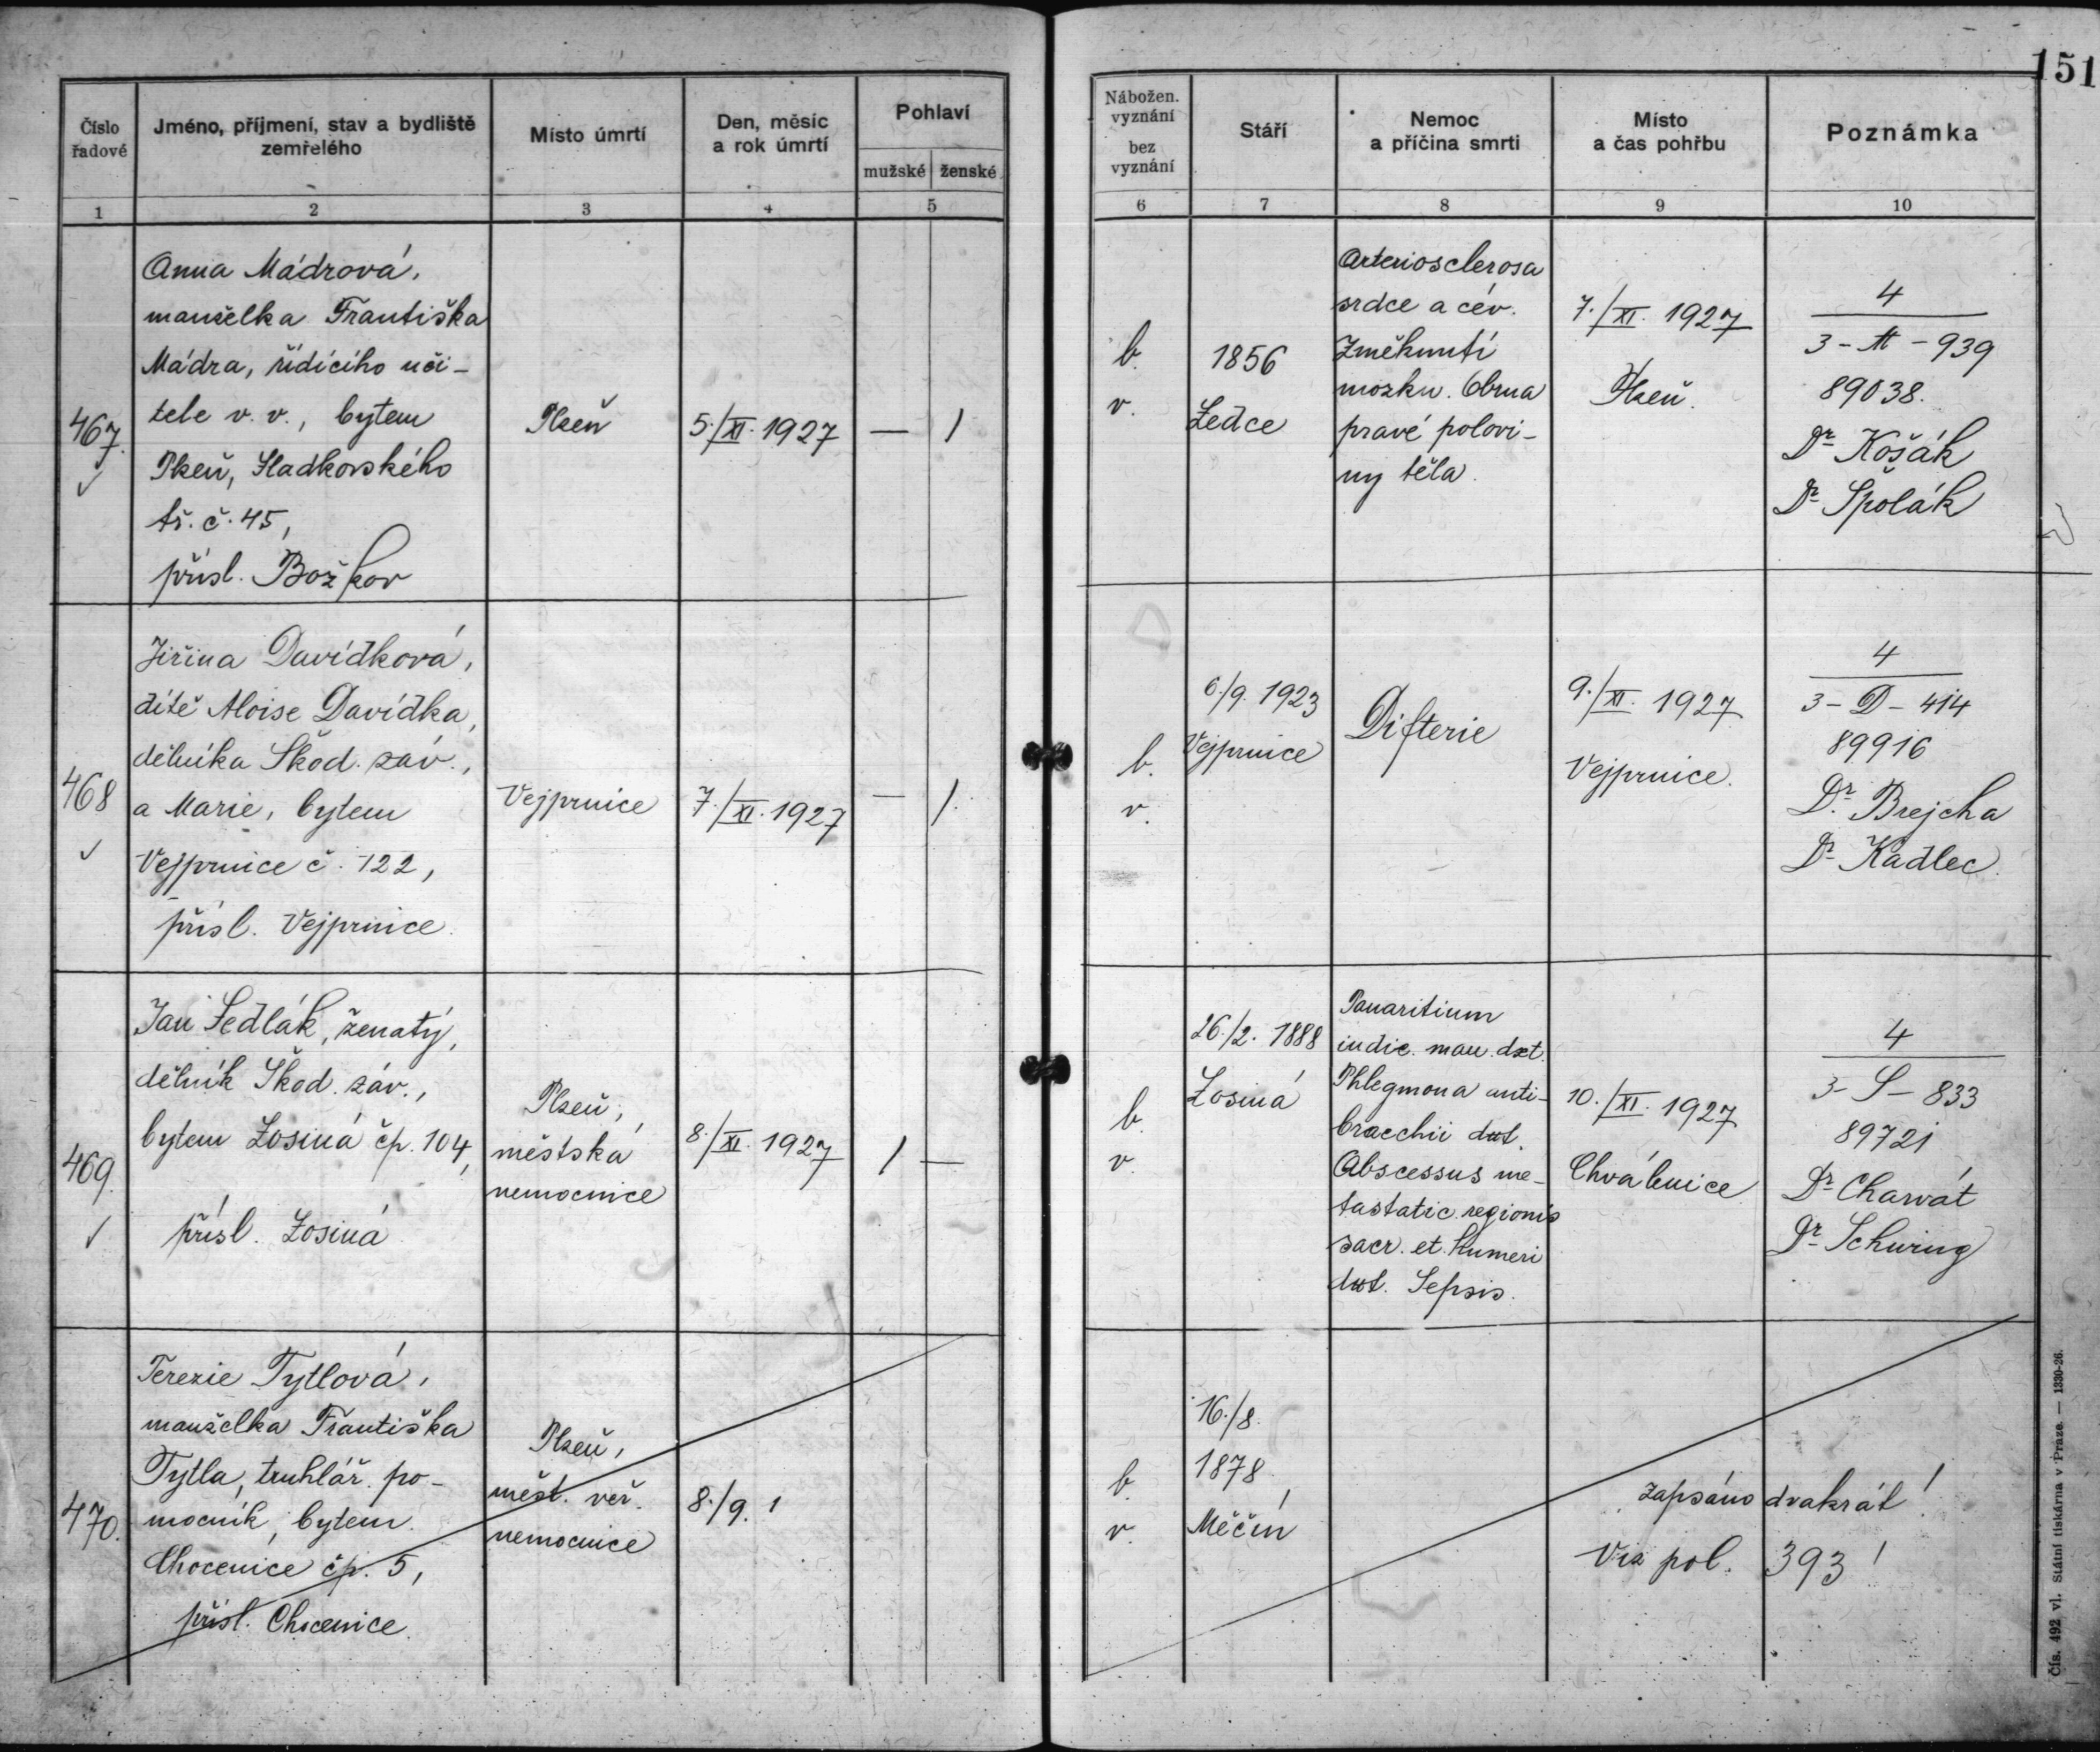 151
Číslo
řadové
Jméno, příjmení, stav a bydliště
zemřelého
Místo úmrtí
Den, měsíc
a rok úmrtí
Pohlaví
mužské ženské
Nábožen.
vyznání
bez
vyznání
Stáří
Nemoc
a příčina smrti
Místo
a čas pohřbu
Poznámka
1 2 3 4 5 6 7 8 9 10
467.
Anna Mádrová,
manželka Františka
Mádra, řídícího uči-
tele v. v., bytem
Plzeň, Sladkovského
tř. č. 45,
přísl. Božkov
Plzeň
5./XI. 1927
— /
b.
v.
1856
Ledce
Arteriosclerosa
srdce a cév.
Změknutí
mozku. Obrna
pravé polovi-
ny těla.
7./XI. 1927
Plzeň.
4
3 - M - 939
89038.
Dr Košák
Dr Špolák
468
Jiřina Davídková,
dítě Aloise Davídka,
dělníka Škod. záv.,
a Marie, bytem
Vejprnice č. 122,
přísl. Vejprnice.
Vejprnice
7./XI. 1927
— /.
b.
v.
6./9. 1923
Vejprnice
Difterie
9./XI. 1927
Vejprnice.
4
3 - D - 414
89916
Dr. Brejcha
Dr Kadlec.
469.
Jan Sedlák, ženatý,
dělník Škod. záv.,
bytem Losiná čp. 104,
přísl. Losiná
Plzeň,
městská
nemocnice
8./XI. 1927
/ —
b.
v.
26./2. 1888
Losiná
Panaritium
indic. man. dxt.
Phlegmona anti-
bracchii dxt.
Abscessus me-
tastatic. regionis
sacr. et humeri
dxt. Sepsis.
10./XI. 1927
Chválenice
4
3 - S - 833
89721
Dr Charvát
Dr Schwing
470.
Terezie Tytlová,
manželka Františka
Tytla, truhlář. po-
mocník, bytem
Chocenice čp. 5,
přísl. Chocenice.
Plzeň,
měst. veř.
nemocnice
8./9. 1
b.
v.
16./8.
1878
Měčín
Zapsáno dvakrát!
Viz pol. 393!
Čís. 492 vl. Státní tiskárna v Praze. — 1330-26.